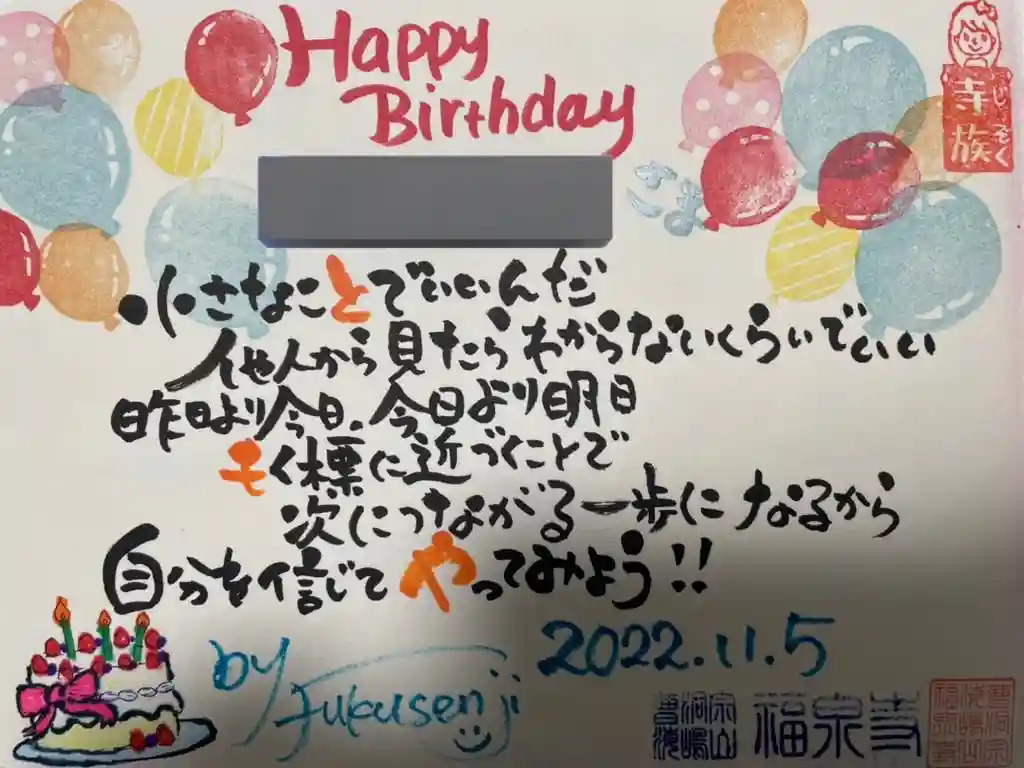 Happy
Birthday
さま
寺族
じぞく
小さなことでいいんだ
他人から見たらわからないくらいでいい
昨日より今日、今日より明日
モく標に近づくことで
次につながる一歩になるから
自分を信じてやってみよう!!
by Fukusenji
2022.11.5
曹洞宗
海嶋山
福泉寺